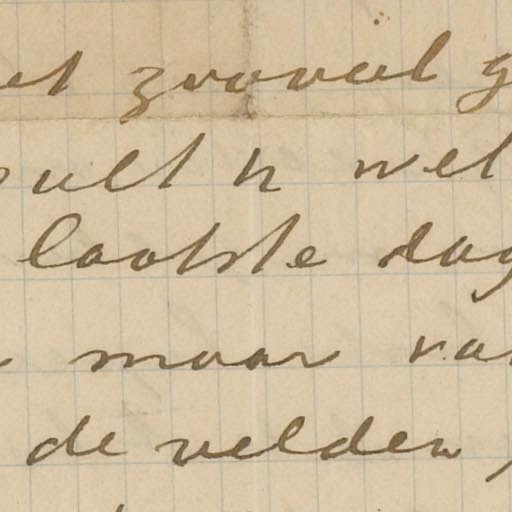 et zooveel g
zult u wel
laatste dag
maar van
de velden,